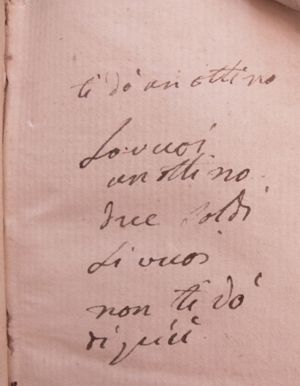 ti dò un ottino
Lo vuoi
un ottino
due soldi
Li vuoi
non ti dò
di più